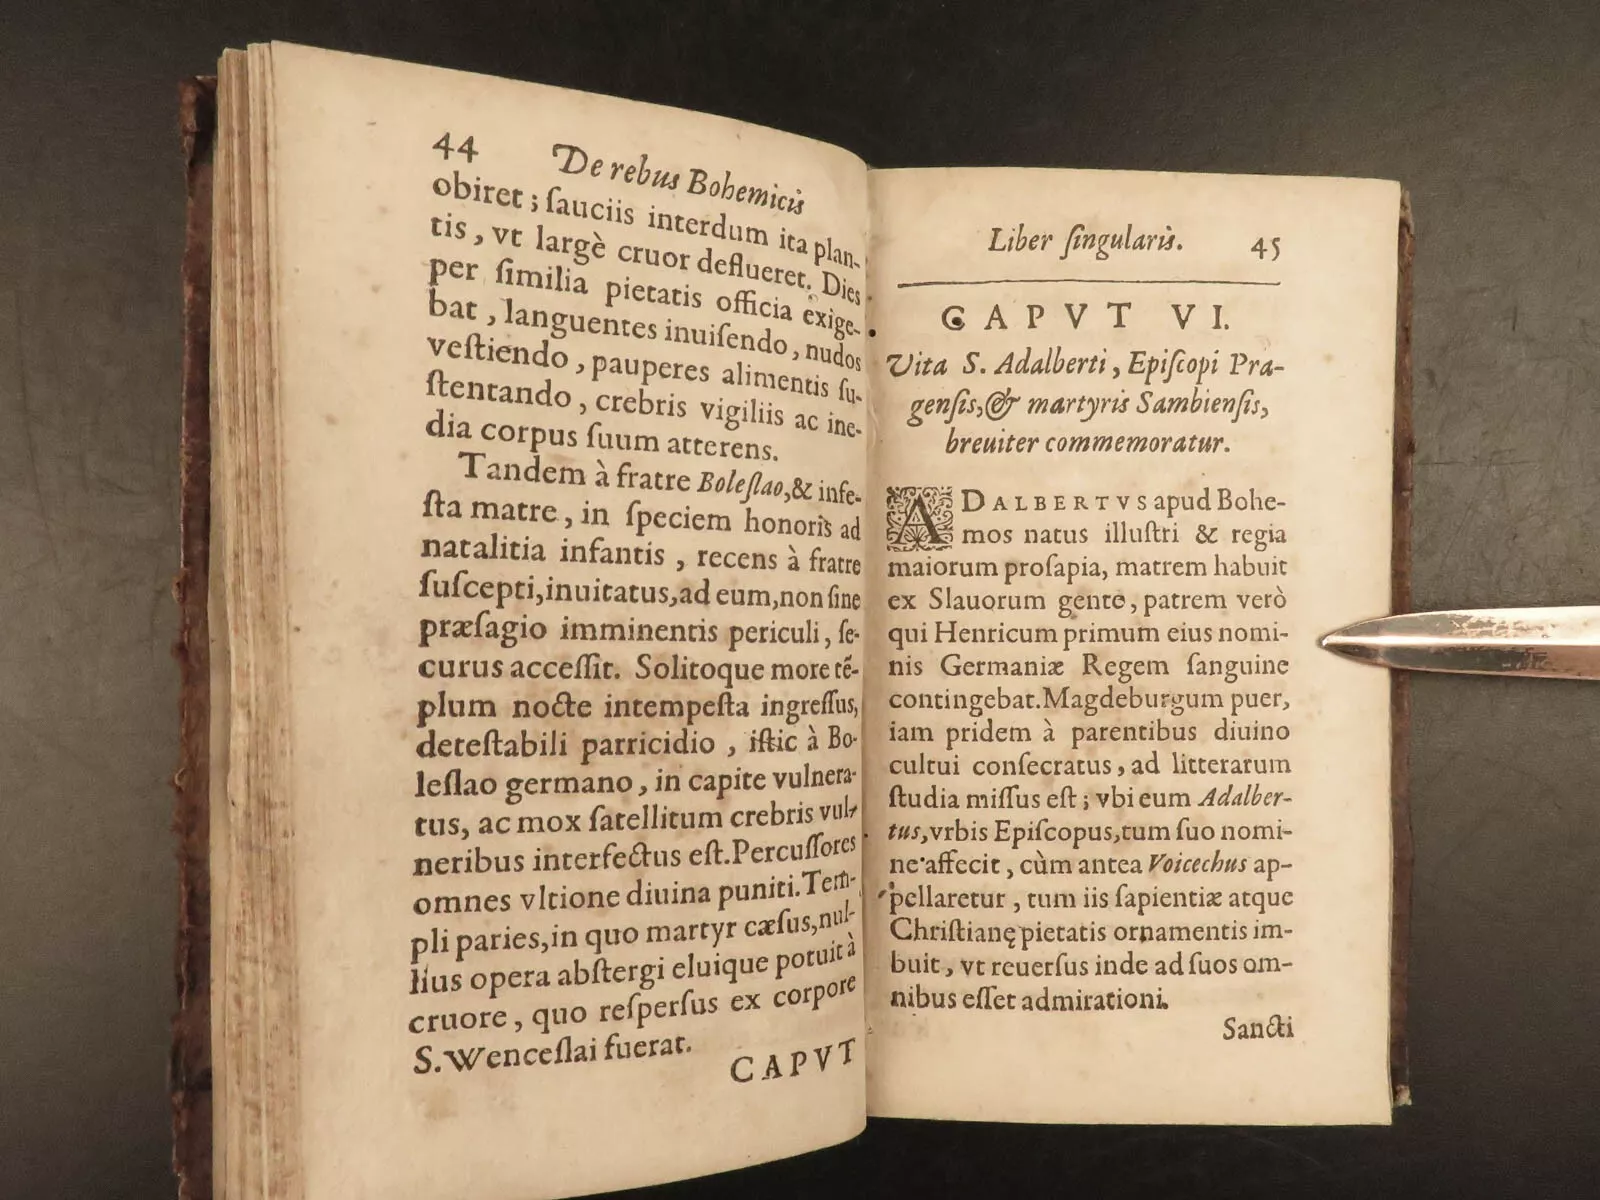 44 De rebus Bohemicis
obiret; ſauciis interdum ita plan-
tis, vt largè cruor deflueret. Dies
per ſimilia pietatis officia exige-
bat, languentes inuiſendo, nudos
veſtiendo, pauperes alimentis ſu-
ſtentando, crebris vigiliis ac ine-
dia corpus ſuum atterens.
Tandem à fratre Boleſlao, & infe-
ſta matre, in ſpeciem honoris ad
natalitia infantis, recens à fratre
ſuſcepti, inuitatus, ad eum, non ſine
præſagio imminentis periculi, ſe-
curus acceſſit. Solitoque more tẽ-
plum nocte intempeſta ingreſſus,
deteſtabili parricidio, iſtic à Bo-
leſlao germano, in capite vulnera-
tus, ac mox ſatellitum crebris vul-
neribus interfectus eſt. Percuſſores
omnes vltione diuina puniti. Tem-
pli paries, in quo martyr cæſus, nul-
lius opera abſtergi eluique potuit à
cruore, quo reſperſus ex corpore
S. Wenceſlai fuerat.
CAPVT
Liber ſingularis. 45
CAPVT VI.
Vita S. Adalberti, Epiſcopi Pra-
genſis, & martyris Sambienſis,
breuiter commemoratur.
ADALBERTVS apud Bohe-
mos natus illuſtri & regia
maiorum proſapia, matrem habuit
ex Slauorum gente, patrem verò
qui Henricum primum eius nomi-
nis Germaniæ Regem ſanguine
contingebat. Magdeburgum puer,
iam pridem à parentibus diuino
cultui conſecratus, ad litterarum
ſtudia miſſus eſt; vbi eum Adalber-
tus, vrbis Epiſcopus, tum ſuo nomi-
ne affecit, cùm antea Voicechus ap-
pellaretur, tum iis ſapientiæ atque
Chriſtianę pietatis ornamentis im-
buit, vt reuerſus inde ad ſuos om-
nibus eſſet admirationi.
Sancti